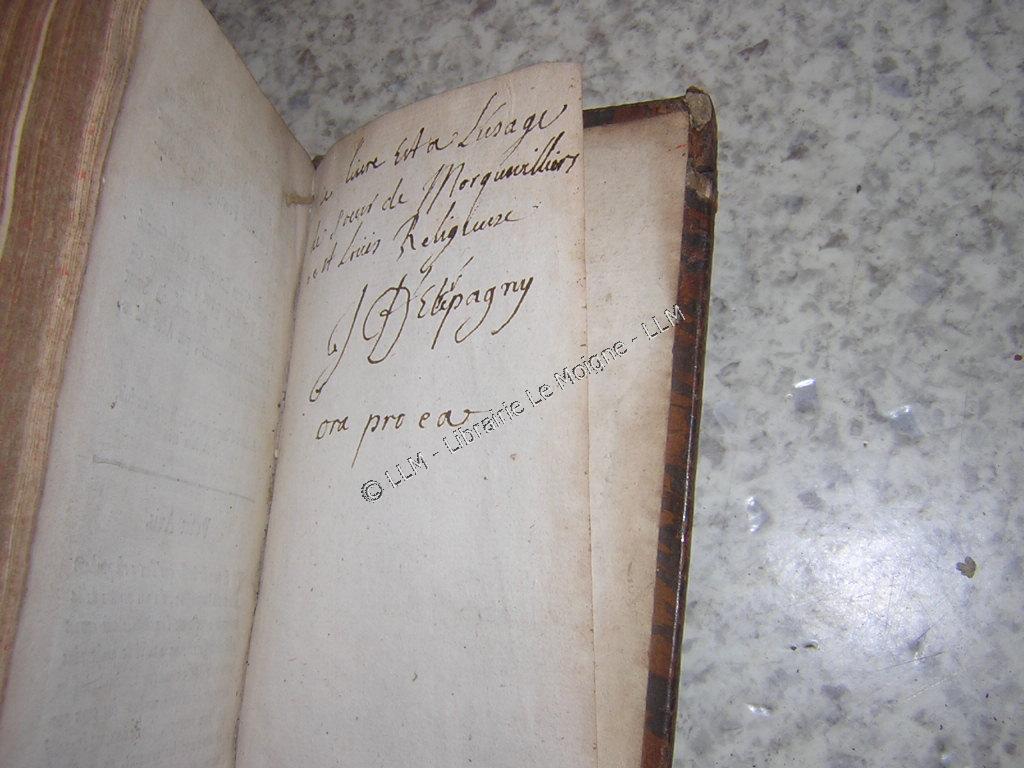 livre Est a Lusage
Soeur de Morguevilliers
st Louis Religieuse
D Etrépagny
ora pro ea
© LLM - Librairie Le Moigne - LLM